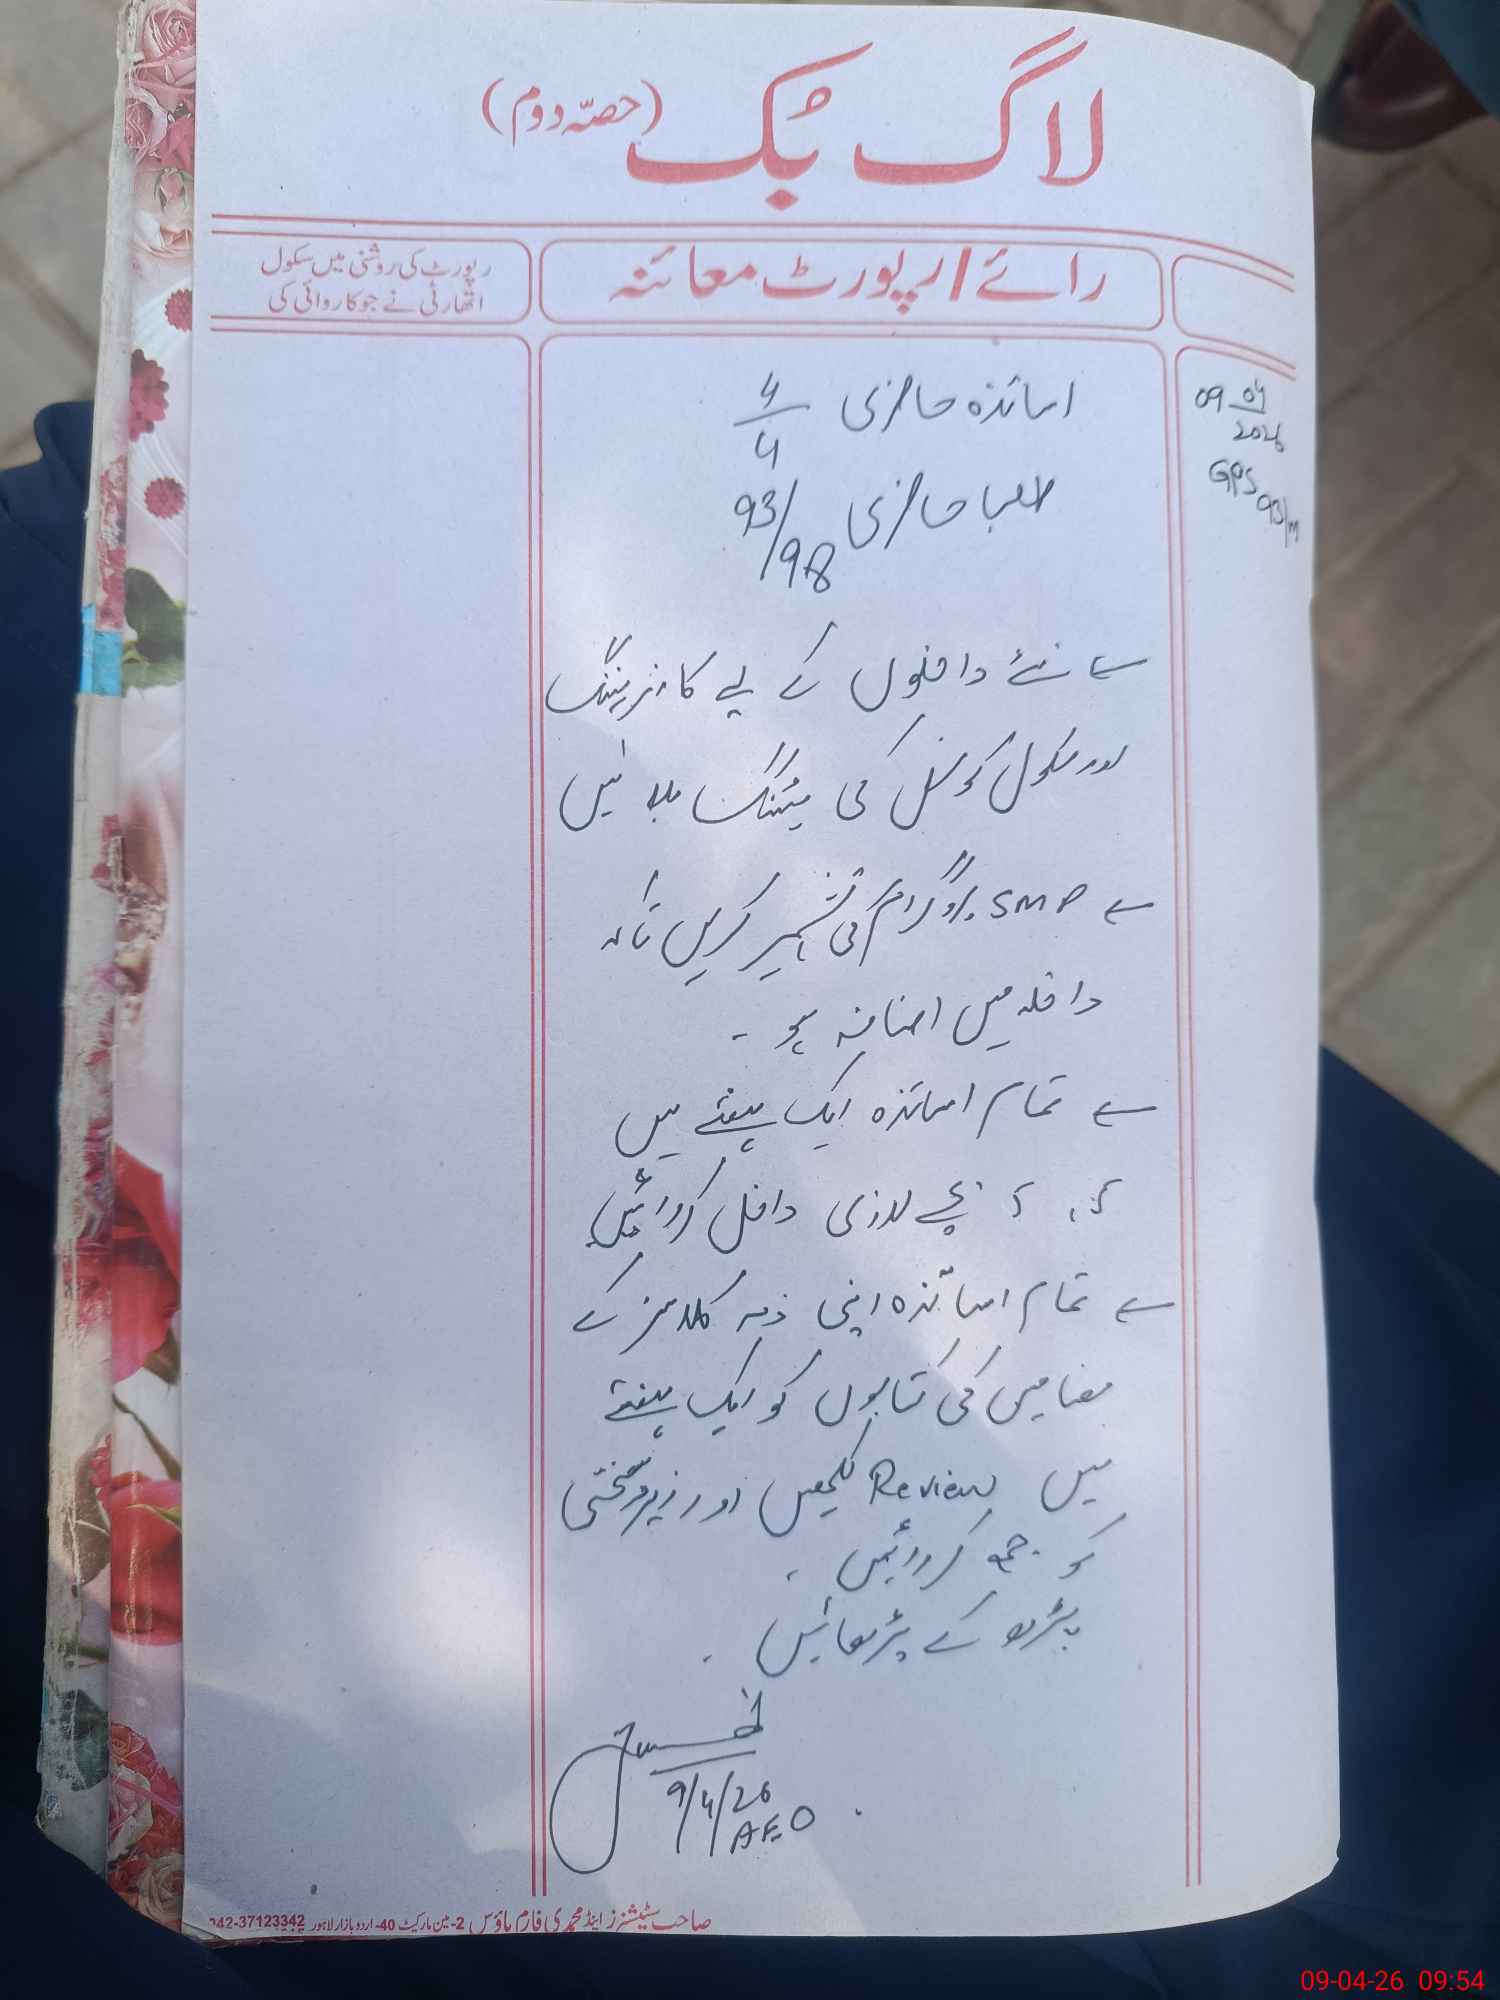 لاگ بک (حصہ دوم)
رائے / رپورٹ معائنہ
رپورٹ کی روشنی میں سکول
اتھارٹی نے جو کاروائی کی
09 04
2026
GPS 93/m
اساتذہ حاضری 4/4
طلبا حاضری 93/98
نئے داخلوں کے لیے کارنر میٹنگ
اور سکول کونسل کی میٹنگ بلائیں
SMP پروگرام کی تشہیر کریں تاکہ
داخلہ میں اضافہ ہو۔
تمام اساتذہ ایک ہفتے میں
5، 5 بچے لازمی داخل کروائیں
تمام اساتذہ اپنی ذمہ کلاسز کے
مضامین کی کتابوں کو ایک ہفتے
میں Review لکھیں اور زیر دستخطی
کو جمع کروائیں۔
پڑھ کے پڑھائیں۔
9/4/26
AEO
صاحب سٹیشنرز اینڈ محمدی فارم ہاؤس 2-مین مارکیٹ 40-اردو بازار لاہور 042-37123342
09-04-26 09:54